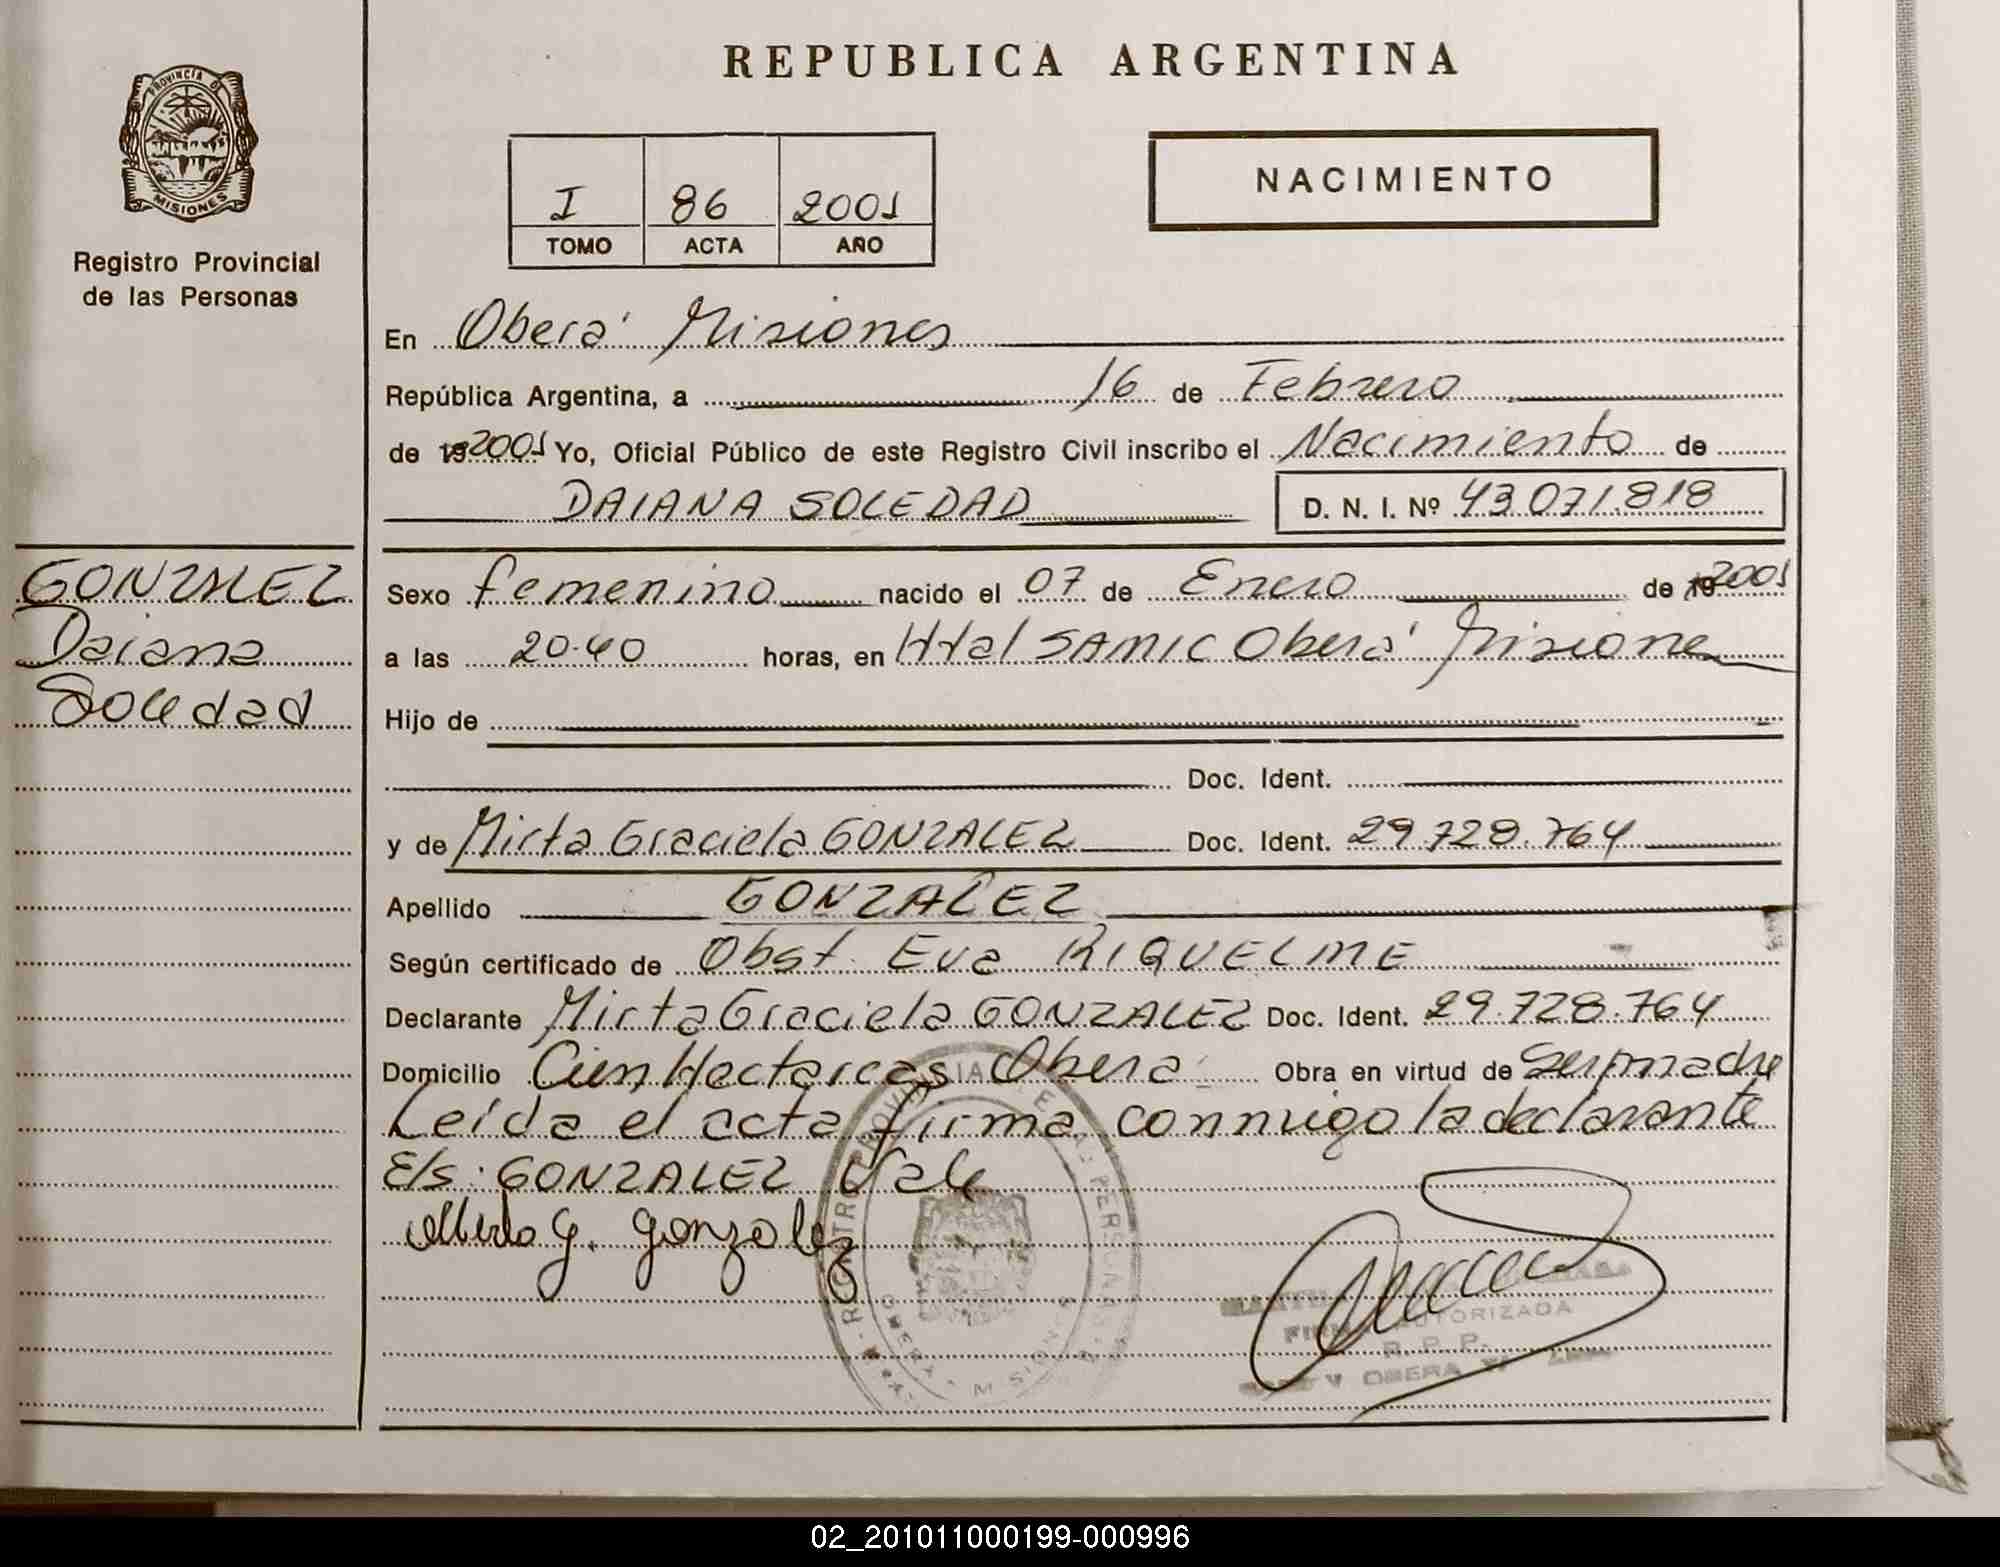 REPUBLICA ARGENTINA
PROVINCIA DE
MISIONES
Registro Provincial
de las Personas
I 86 2001
TOMO ACTA AÑO
NACIMIENTO
En Oberá Misiones
República Argentina, a 16 de Febrero
de 192001 Yo, Oficial Público de este Registro Civil inscribo el Nacimiento de
DAIANA SOLEDAD D. N. I. Nº 43.071.818
GONZALEZ
Daiana
Soledad
Sexo femenino nacido el 07 de Enero de 192001
a las 20.40 horas, en Htal SAMIC Oberá Misiones
Hijo de
Doc. Ident.
y de Mirta Graciela GONZALEZ Doc. Ident. 29.728.764
Apellido GONZALEZ
Según certificado de Obst. Eva RIQUELME
Declarante Mirta Graciela GONZALEZ Doc. Ident. 29.728.764
Domicilio Cien Hectareas Oberá Obra en virtud de Ser madre
Leída el acta firma conmigo la declarante
E/s: GONZALEZ Vale
G. Gonzalez
AUTORIZADA
R. P. P.
OBERA
02_201011000199-000996